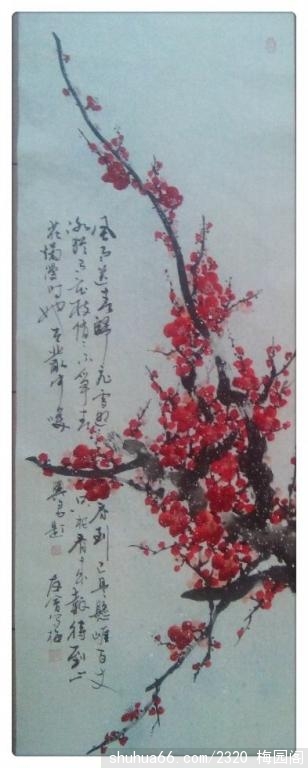 风雨送春歸飛雪迎春到已是懸崖百丈
冰犹有花枝俏俏不争春只把春来报待到山
花烂漫时她在叢中笑
题
写梅
shuhua66.com/2320 梅园阁